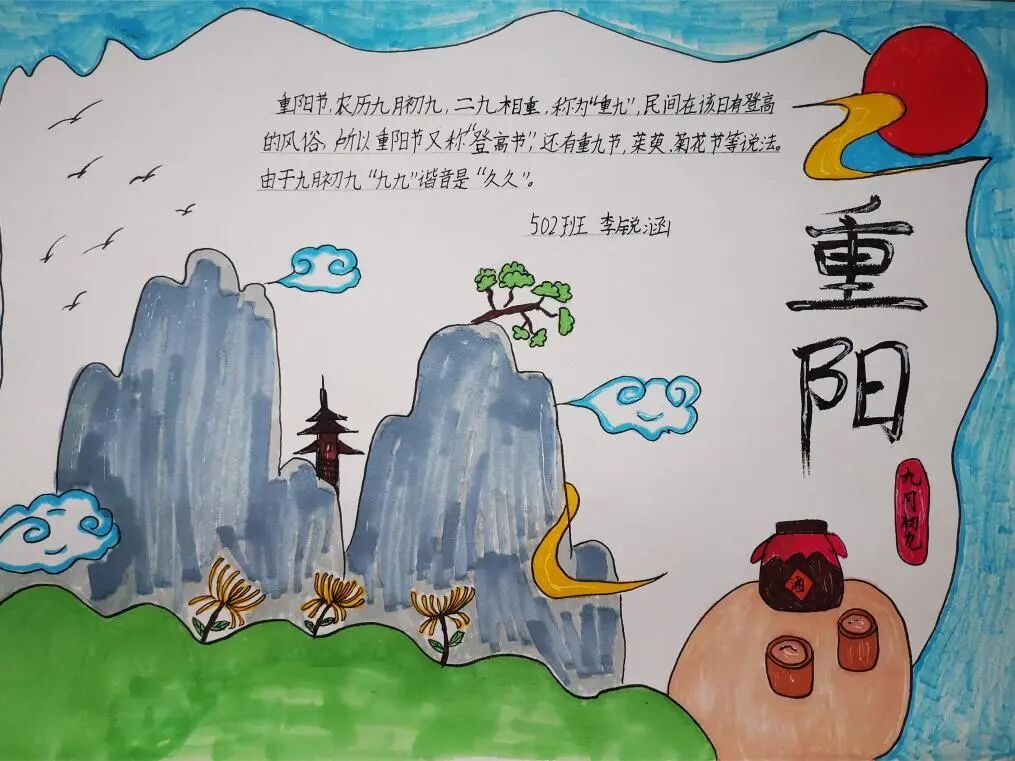 重阳节,农历九月初九,二九相重,称为"重九",民间在该日有登高
的风俗,所以重阳节又称"登高节",还有重九节,茱萸,菊花节等说法。
由于九月初九"九九"谐音是"久久"。
502班 李锐涵
重阳
九月初九
酒